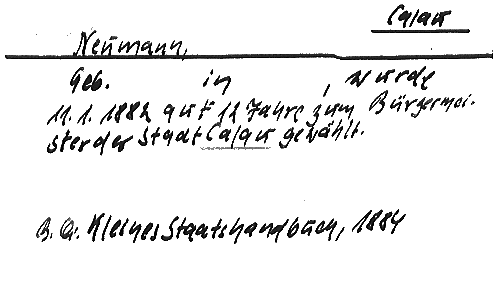 Calau
Neumann,
Geb. in , wurde
11.1.1882 auf 12 Jahre zum Bürgermei-
ster der Stadt Calau gewählt.
B. Qu. Kleines Staatshandbuch, 1884